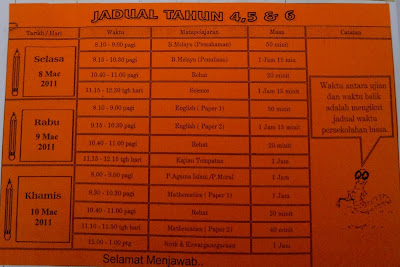 JADUAL TAHUN 4,5 & 6
Tarikh / Hari Waktu Matapelajaran Masa Catatan
Selasa
8 Mac
2011
8.10 - 9.00 pagi B.Melayu (Pemahaman) 50 minit
9.15 - 10.30 pagi B.Melayu (Penulisan) 1 Jam 15 min
10.40 - 11.00 pagi Rehat 20 minit
11.15 - 12.30 tgh hari Science 1 Jam 15 minit
Rabu
9 Mac
2011
8.10 - 9.00 pagi English ( Paper 1) 50 minit
9.15 - 10.30 pagi English ( Paper 2) 1 Jam 15 minit
10.40 - 11.00 pagi Rehat 20 minit
11.15 - 12.15 tgh hari Kajian Tempatan 1 Jam
Khamis
10 Mac
2011
8.00 - 9.00 pagi P.Agama Islam /P.Moral 1 Jam
9.30 - 10.30 pagi Mathematics ( Paper 1) 1 Jam
10.40 - 11.00 pagi Rehat 20 minit
Mathematics ( Paper 2) 40 minit
Sivik & Kewarganegaraan 1 Jam
Waktu antara ujian
dan waktu balik
adalah mengikut
jadual waktu
persekolahan biasa.
Selamat Menjawab..